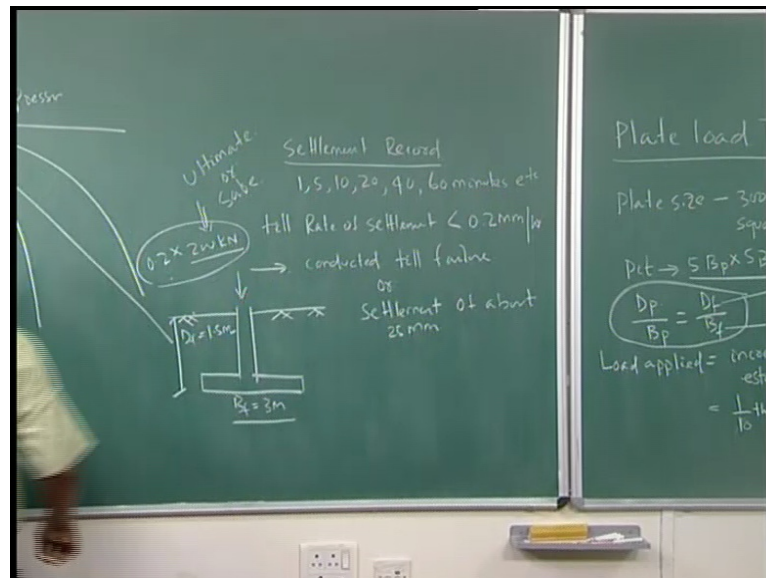 Ultimate
or
Safe
0.2 × 200 kN
Settlement Record
1, 5, 10, 20, 40, 60 minutes etc
till Rate of settlement < 0.2 mm/hr
→ conducted till failure
or
settlement of about
25 mm
Df = 1.5m
Bf = 3m
Plate load
Plate size - 300
squa
Pit → 5 Bp × 5 B
Dp/Bp = Df/Bf
Load applied = incr
est
= 1/10 th